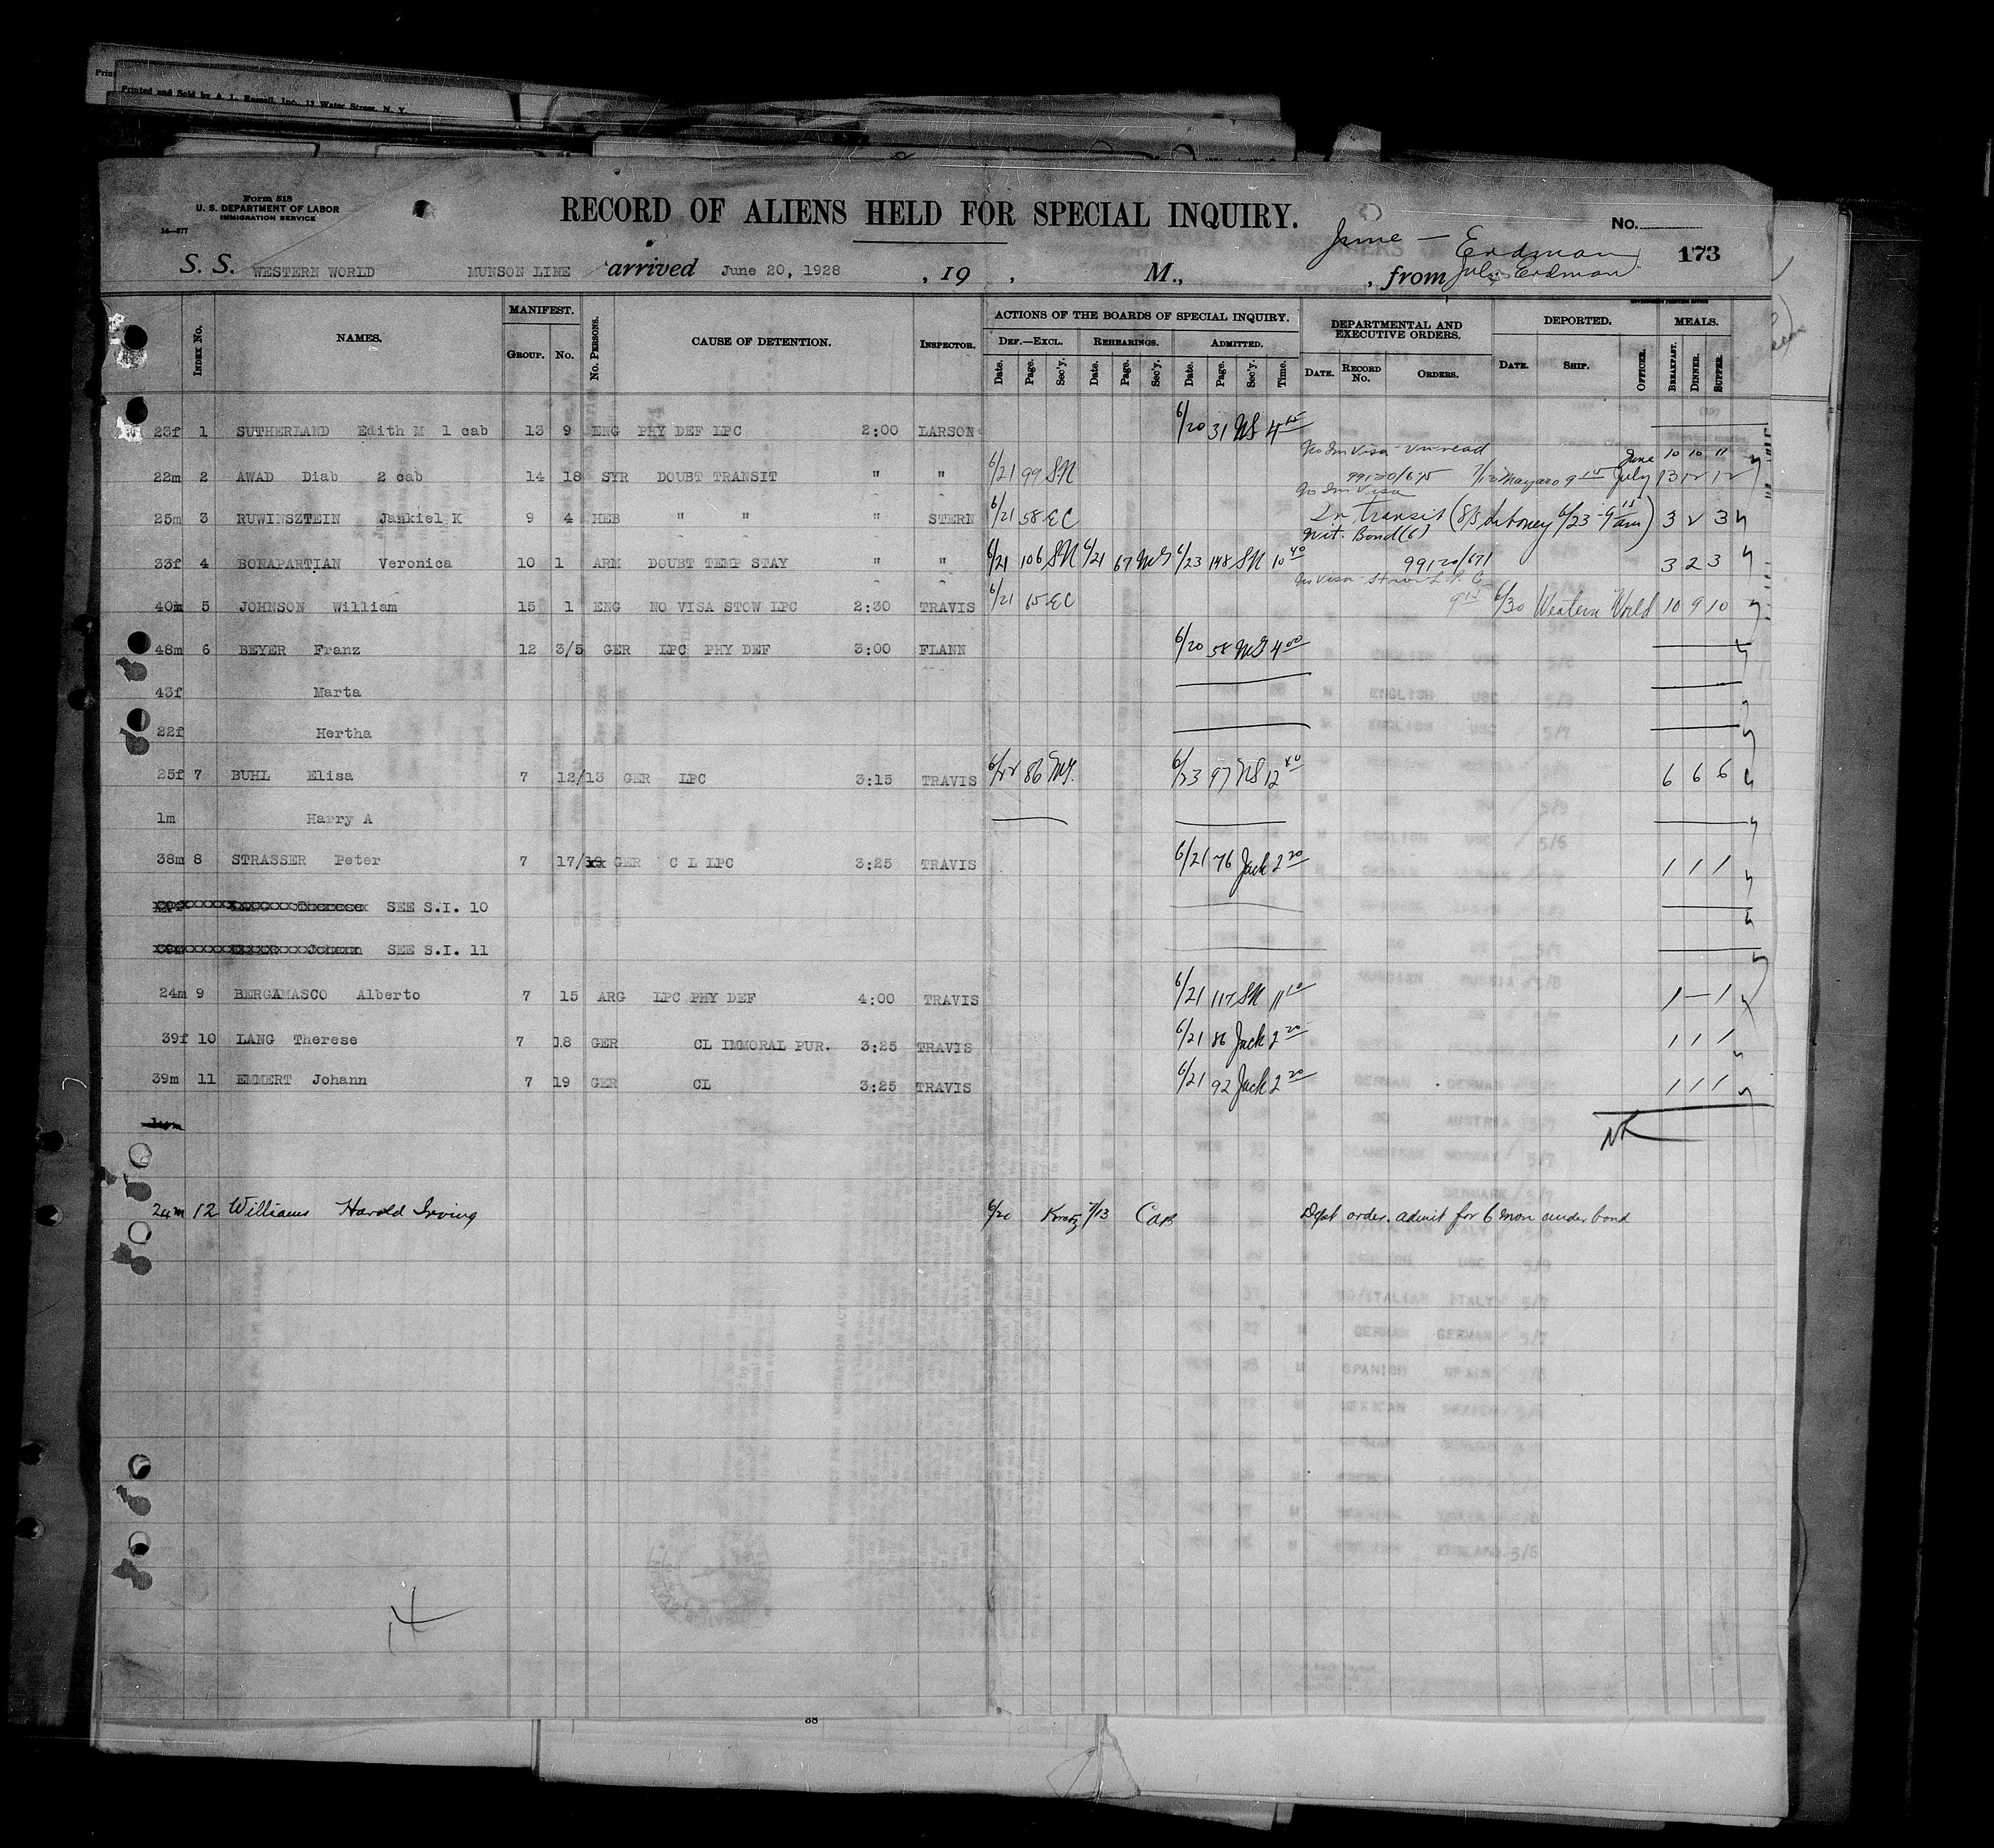 Printed and Sold by A. L. Russell, Inc., 13 Water Street, N. Y.
Form 518
U. S. DEPARTMENT OF LABOR
IMMIGRATION SERVICE
14—377
RECORD OF ALIENS HELD FOR SPECIAL INQUIRY.
No.
173
June — Erdman
S. S. WESTERN WORLD MUNSON LINE arrived June 20, 1928 , 19 , M., , from July Erdman
INDEX No. NAMES. MANIFEST. GROUP. No. No. PERSONS. CAUSE OF DETENTION. INSPECTOR. ACTIONS OF THE BOARDS OF SPECIAL INQUIRY. DEPARTMENTAL AND EXECUTIVE ORDERS. DEPORTED. MEALS.
DEF.—EXCL. REHEARINGS. ADMITTED.
Date. Page. Sec'y. Date. Page. Sec'y. Date. Page. Sec'y. Time. DATE. RECORD No. ORDERS. DATE. SHIP. OFFICER. BREAKFAST. DINNER. SUPPER.
23f 1 SUTHERLAND Edith M 1 cab 13 9 ENG PHY DEF LPC 2:00 LARSON 6/20 31 NS 4 15
No Im Visa June 10 10 11
22m 2 AWAD Diab 2 cab 14 18 SYR DOUBT TRANSIT " " 6/21 99 SN 99120/675 7/12 Mayaro 9 15 July 13 12 12
No Im Visa
25m 3 RUWINSZTEIN Jankiel K 9 4 HEB " " " STERN 6/21 58 EC In Transit (S/S Siboney 6/23 - 9 15 am) 3 2 3
Wit. Bond (6)
33f 4 BONAPARTIAN Veronica 10 1 ARM DOUBT TEMP STAY " " 6/21 106 SN 6/21 67 6/23 148 SN 10 40 99120/671 3 2 3
No Visa - Stow L. P. C
40m 5 JOHNSON William 15 1 ENG NO VISA STOW LPC 2:30 TRAVIS 6/21 15 EC 9 15 6/30 Western World 10 9 10
48m 6 BEYER Franz 12 3/5 GER LPC PHY DEF 3:00 FLANN 6/20 58 4 00
43f Marta
22f Hertha
25f 7 BUHL Elisa 7 12/13 GER LPC 3:15 TRAVIS 6/22 86 6/23 97 NS 12 40 6 6 6
1m Harry A
38m 8 STRASSER Peter 7 17/ GER C L LPC 3:25 TRAVIS 6/21 76 Jack 2 20 1 1 1
Therese SEE S.I. 10
Johann SEE S.I. 11
24m 9 BERGAMASCO Alberto 7 15 ARG LPC PHY DEF 4:00 TRAVIS 6/21 117 SN 11 10 1 — 1
39f 10 LANG Therese 7 18 GER CL IMMORAL PUR. 3:25 TRAVIS 6/21 86 Jack 2 20 1 1 1
39m 11 EMMERT Johann 7 19 GER CL 3:25 TRAVIS 6/21 92 Jack 2 20 1 1 1
24m 12 Williams Harold Irving 6/20 7/13 Dept order. admit for 6 mon under bond
14
38